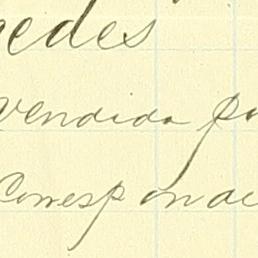 edes
vendida po
Corresponde